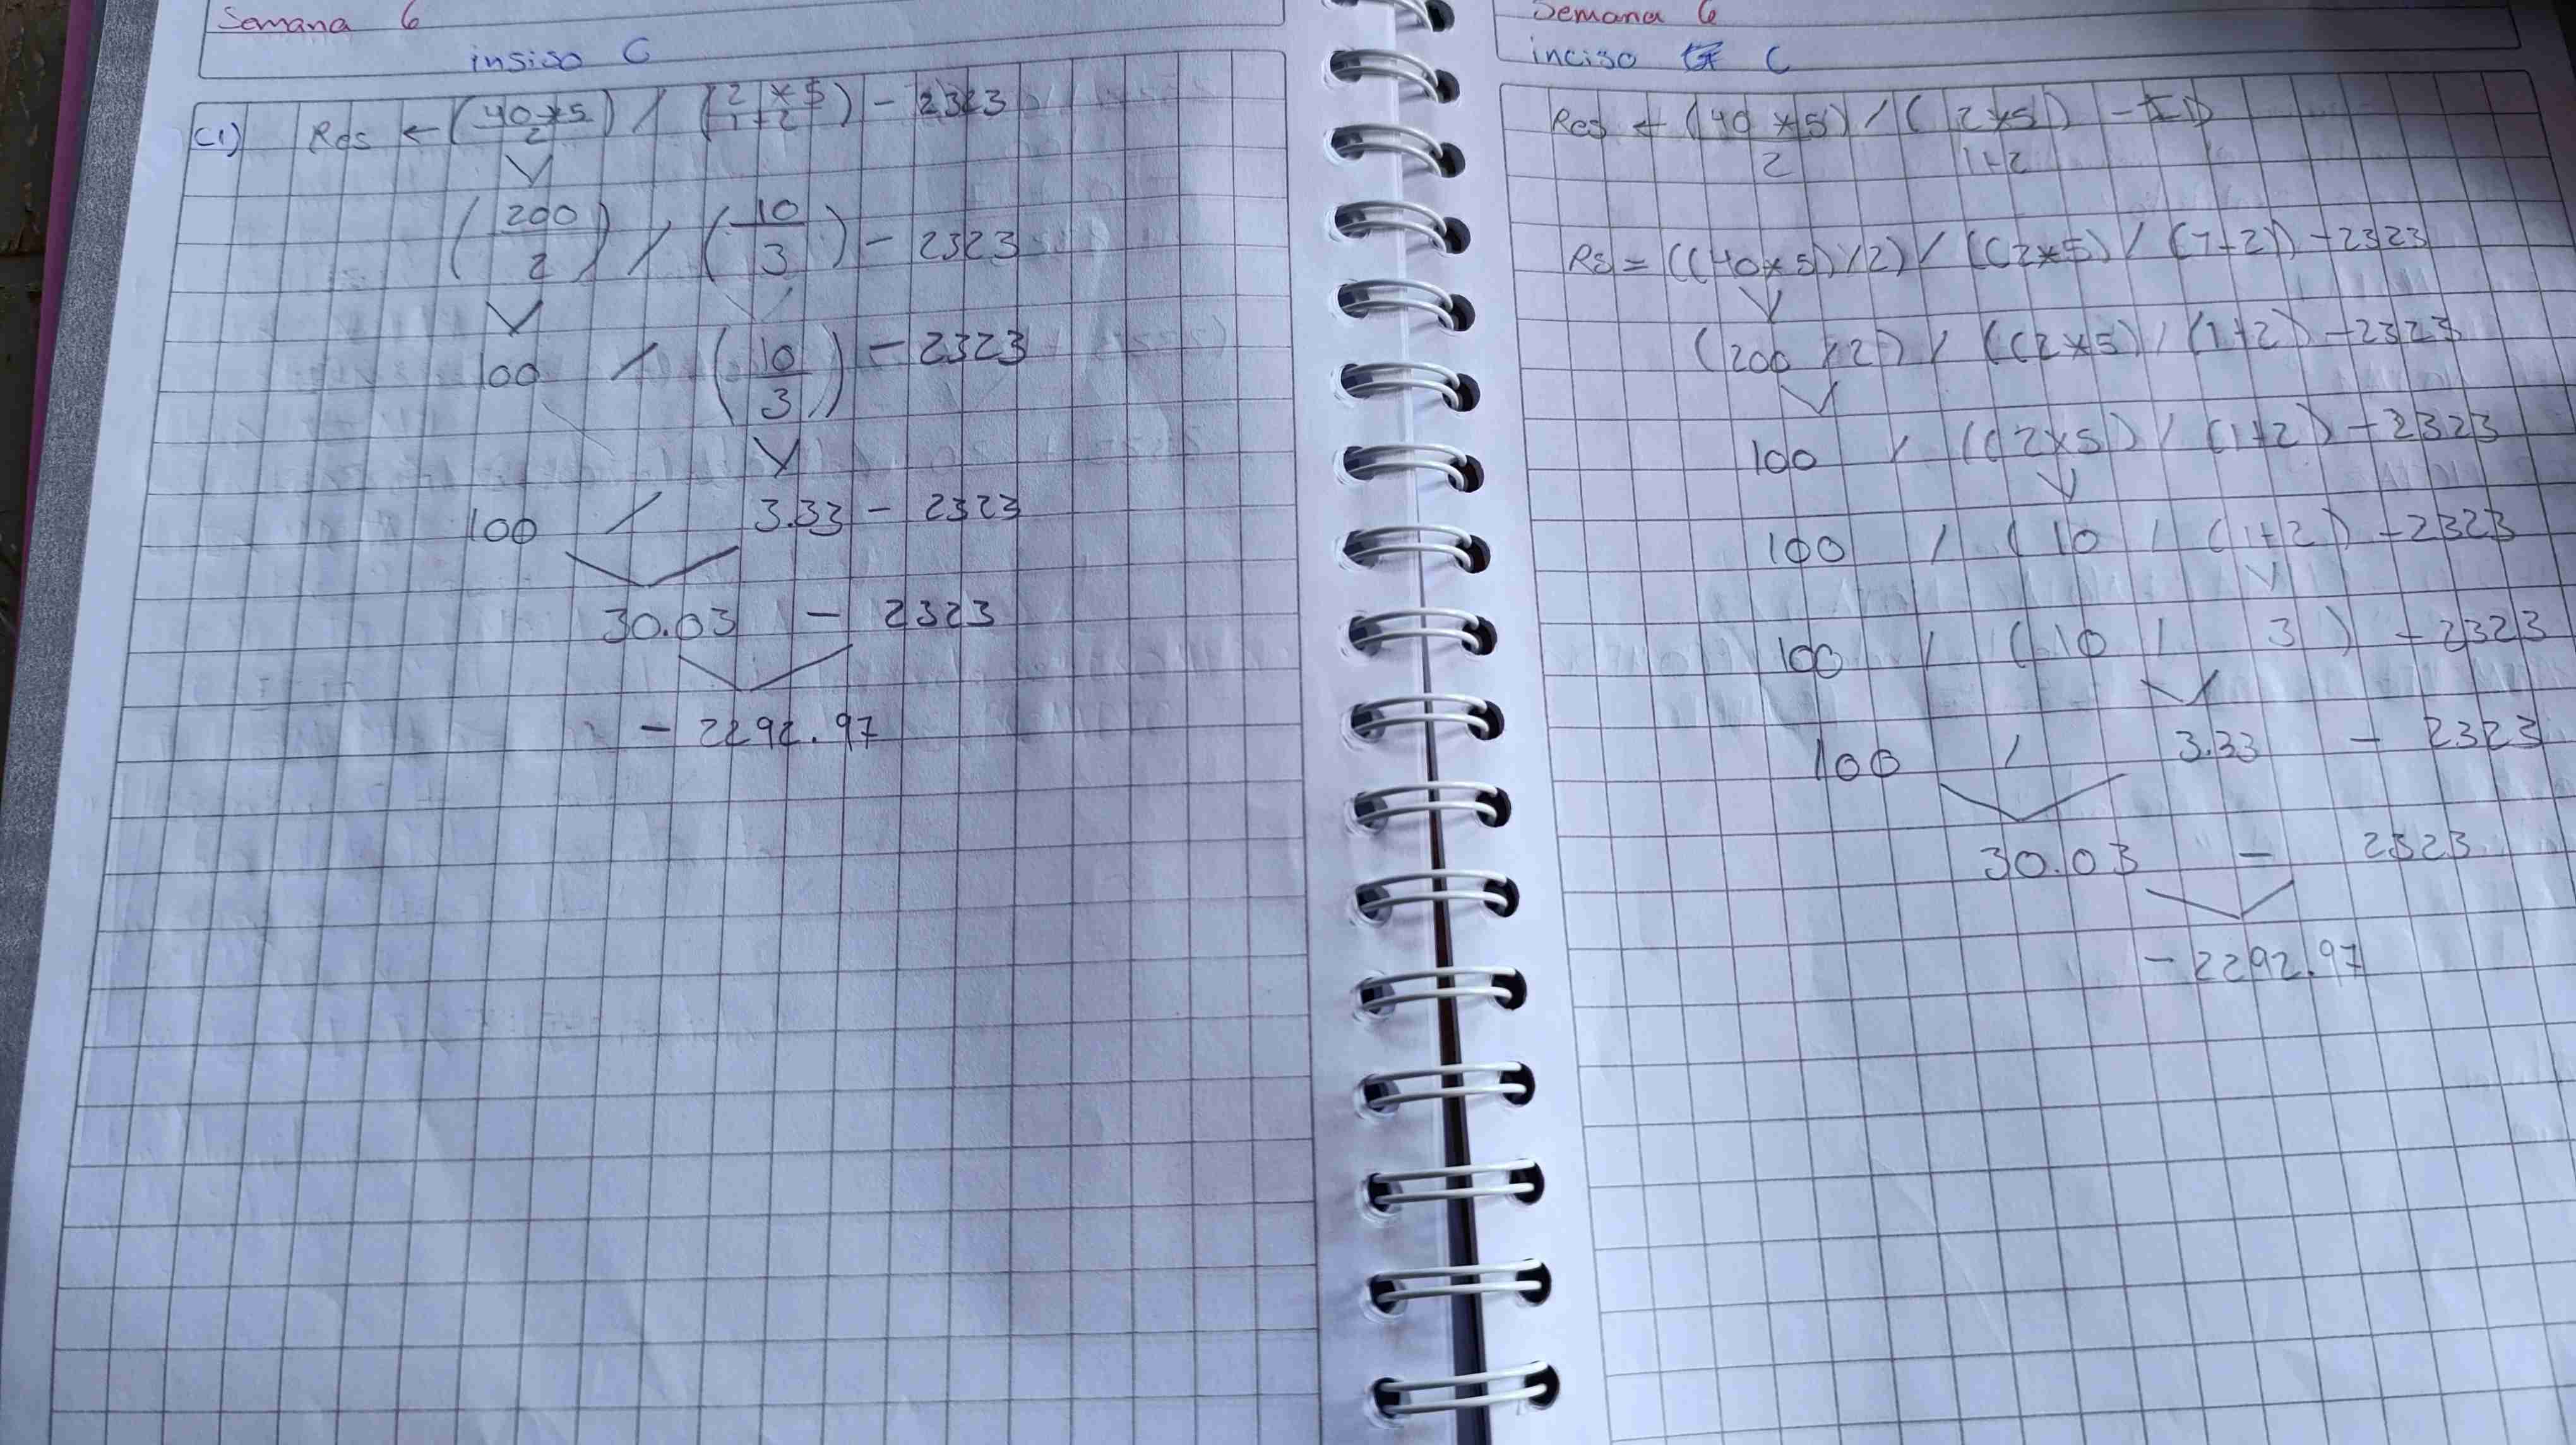 Semana 6
insiso C
C1) Res ← (40*5/2) / (2*5/1+2) - 2323
(200/2) / (10/3) - 2323
100 / (10/3) - 2323
100 / 3.33 - 2323
30.03 - 2323
- 2292.97
Semana 6
inciso C
Res ← (40*5)/2 / (2*5)/1+2 - ID
Rs = ((40*5)/2) / ((2*5) / (1+2)) - 2323
(200 / 2) / ((2*5) / (1+2) - 2323
100 / ((2*5) / (1+2) - 2323
100 / (10 / (1+2) - 2323
100 / (10 / 3) - 2323
100 / 3.33 - 2323
30.03 - 2323
- 2292.97